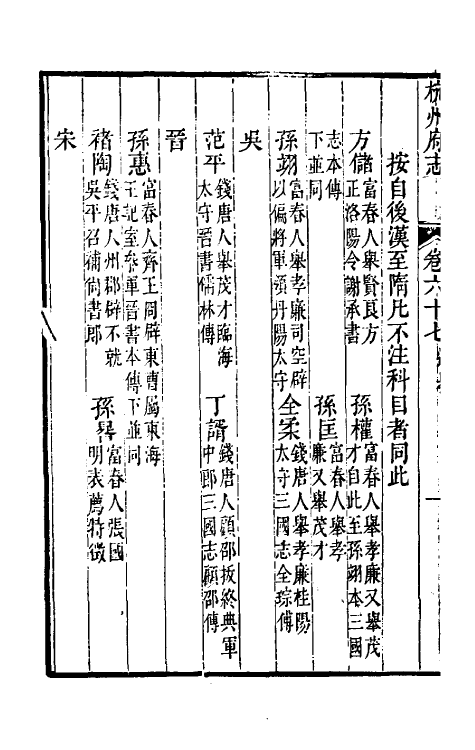 杭州府志 卷六十七
按自後漢至隋凡不注科目者同此
方儲 富春人舉賢良方
正洛陽令謝承書
孫權 富春人舉孝廉又舉茂
才自此至孫翊本三國
志本傳
下並同
孫匡 富春人舉孝
廉又舉茂才
孫翊 富春人舉孝廉司空辟
以偏將軍領丹陽太守
全柔 錢唐人舉孝廉桂陽
太守三國志全琮傳
吳
范平 錢唐人舉茂才臨海
太守晉書儒林傳
丁諝 錢唐人顧邵拔終典軍
中郎三國志顧邵傳
晉
孫惠 富春人齊王冏辟東曹屬東海
王記室參軍晉書本傳下並同
褚陶 錢唐人州郡辟不就
吳平召補尚書郎
孫晷 富春人張國
明表薦特徵
宋